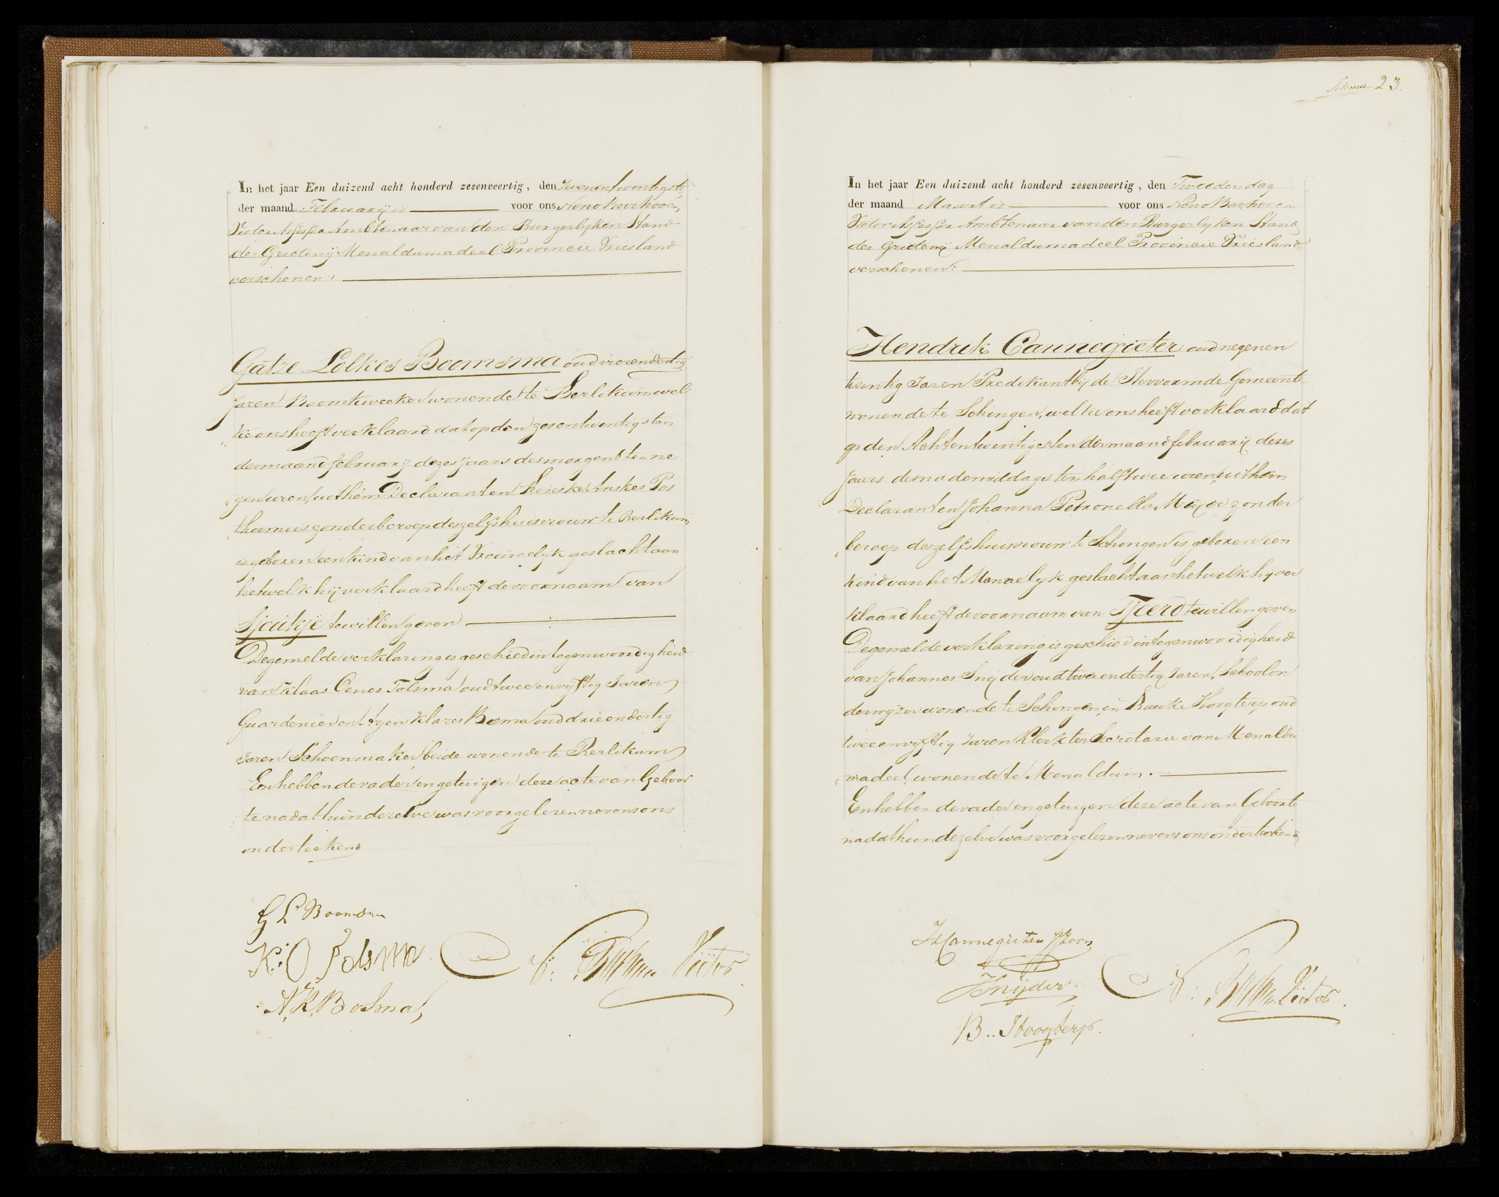 In het jaar Een duizend acht honderd zesenveertig, den Zevenentwintigste
der maand Februarij voor ons
Vietor Assessor Ambtenaar van den Burgerlyken Stand
der Grietenij Menaldumadeel Provincie Vriesland
verschenen:
Gatze Lolkes Boomsma oud vierendertig
Jaren Boomkweeker wonende te Berlikum wel
ke ons heeft verklaard dat op den zesentwintigsten
der maand februarij dezes jaars des morgens ten ne
gen uren uit hem Declarant en
zonder beroep deszelfs huisvrouw te Berlikum
is geboren een kind van het Vrouwelyk geslacht aan
hetwelk hij verklaard heeft de voornaam van
Sjoukje te willen geven
Degemelde verklaring is geschied in tegenwoordigheid
van Klaas Oenes Tolsma oud tweeenvyftig Jaren
Gardenier en Agen Klazes Bosma oud drieendertig
Jaren Schoenmaker beide wonende te Berlikum
En hebben de vader en getuigen deze acte van Geboor
te na dat hun dezelve was voorgelezen nevens ons
onderteekend
G L Boomsma
K: O Tolsma
A. K. Bosma
N: Vietor
23.
In het jaar Een duizend acht honderd zesenveertig, den Tweeden dag
der maand Maart voor ons
Vietor Assessor Ambtenaar van den Burgerlyken Stand
der Grietenij Menaldumadeel Provincie Vriesland
verschenen:
Hendrik Cannegieter oud negenen
twintig Jaren Predikant bij de Hervormde Gemeente
wonende te Schingen, welke ons heeft verklaard dat
op den Achtentwintigsten der maand februarij dezes
jaars des nademiddags ten half twee uren uit hem
Declarant en Johanna Petronella zonder
beroep deszelfs huisvrouw te Schingen is geboren een
kind van het Mannelyk geslacht aan hetwelk hy ver
klaard heeft de voornaam van Tjeerd te willen geven
Degemelde verklaring is geschied in tegenwoordigheid
van Johannes Snijder oud tweeendertig Jaren, Schoolon
derwyzer wonende te Schingen en Bauke Hoogterp oud
tweeenvyftig Jaren Klerk ter Secretarie van Menaldu
madeel, wonende te Menaldum.
En hebben de vader en getuigen deze acte van Geboorte
na dat hun dezelve was voorgelezen nevens ons onderteekend
H Cannegieter
J Snijder.
B.. Hoogterp.
N: Vietor.